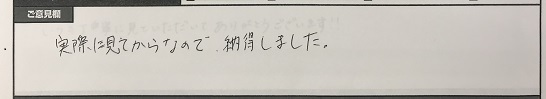 ご意見欄
実際に見てからなので、納得しました。